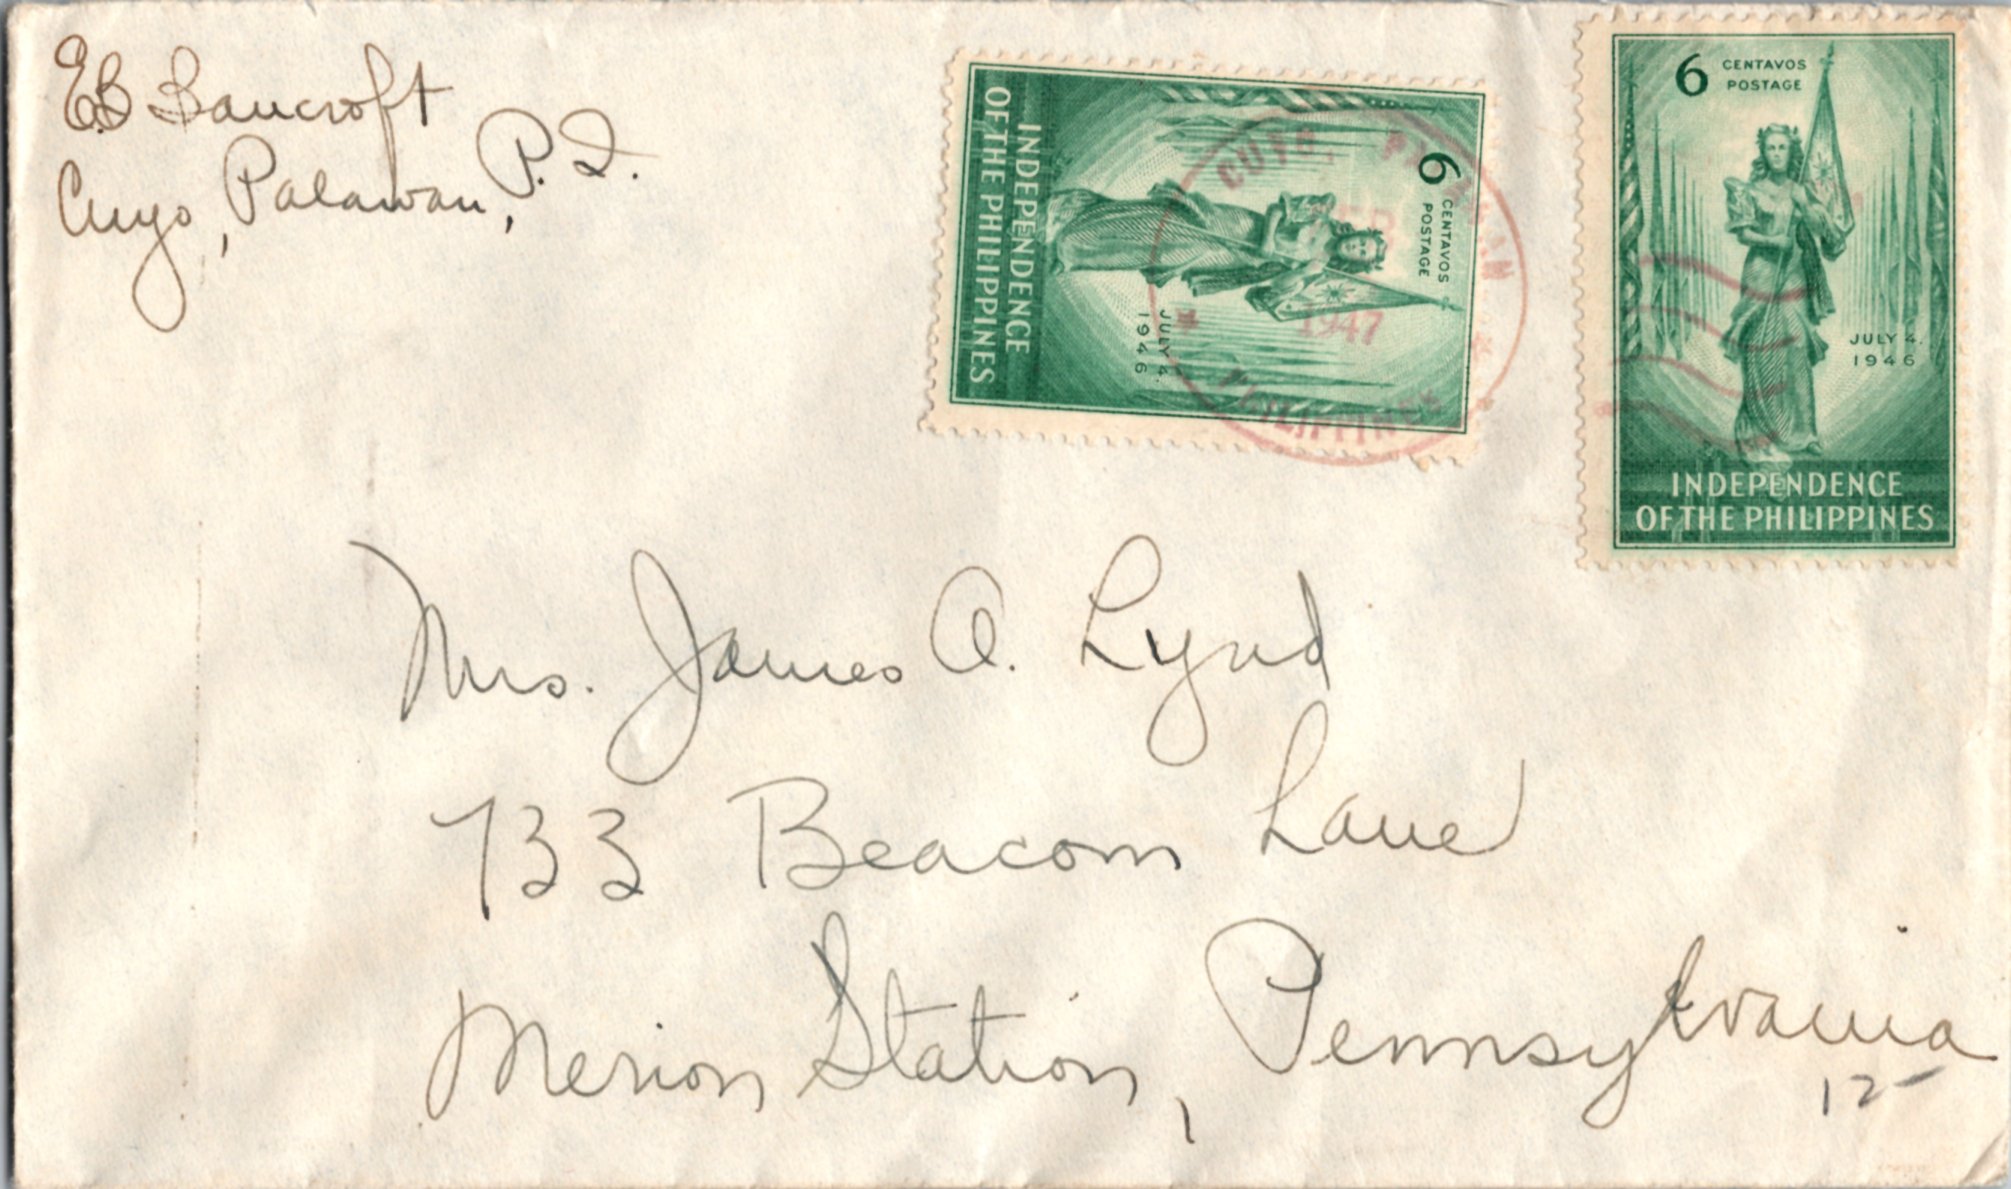 E.B Bancroft
Cuyo, Palawan, P.I.
6 CENTAVOS
POSTAGE
JULY 4,
1946
INDEPENDENCE
OF THE PHILIPPINES
CUYO, PALAWAN
FEB
1947
PHILIPPINES
6 CENTAVOS
POSTAGE
JULY 4,
1946
INDEPENDENCE
OF THE PHILIPPINES
Mrs. James A. Lynd
733 Beacom Lane
Merion Station, Pennsylvania
12